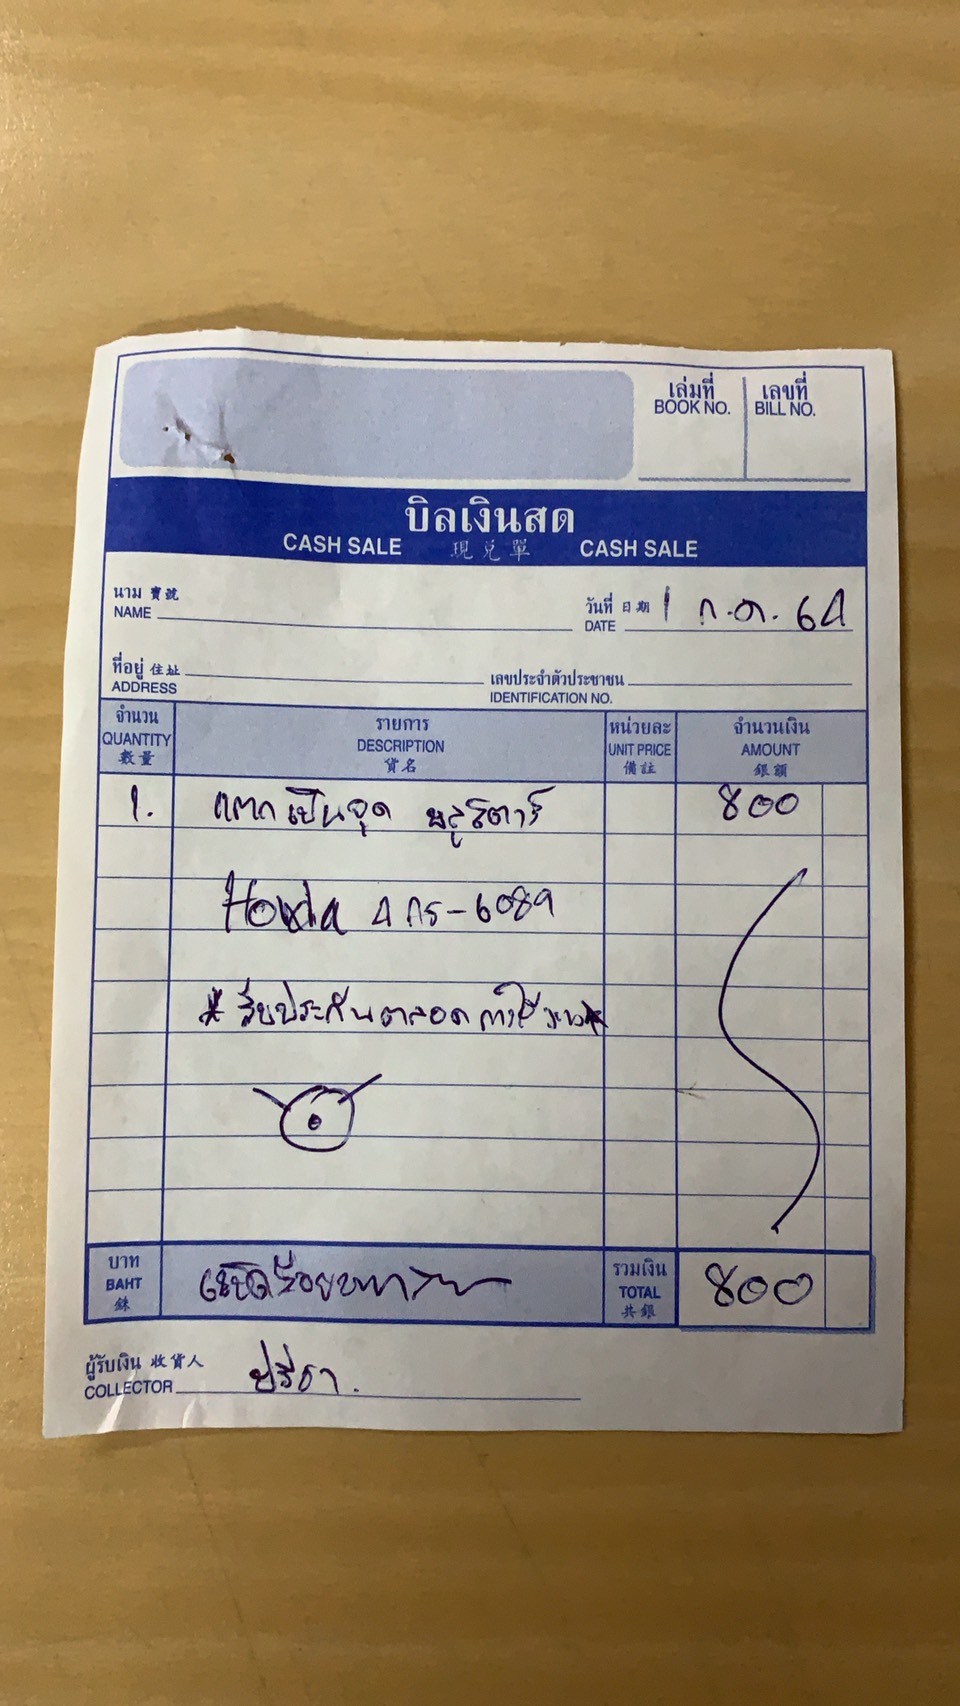 เล่มที่ เลขที่
BOOK NO. BILL NO.
บิลเงินสด
CASH SALE 現兌單 CASH SALE
นาม 寶號
NAME
วันที่ 日期 1 ก.ค. 64
DATE
ที่อยู่ 住址
ADDRESS
เลขประจำตัวประชาชน
IDENTIFICATION NO.
จำนวน รายการ หน่วยละ จำนวนเงิน
QUANTITY DESCRIPTION UNIT PRICE AMOUNT
數量 貨名 備註 銀額
1. แตกเป็นจุด บลูสตาร์ 800
Honda 4 กร-6089
* รับประกันตลอดการใช้งาน *
บาท รวมเงิน
BAHT แปดร้อยบาท TOTAL 800
銖 共銀
ผู้รับเงิน 收貨人
COLLECTOR ปรีดา.